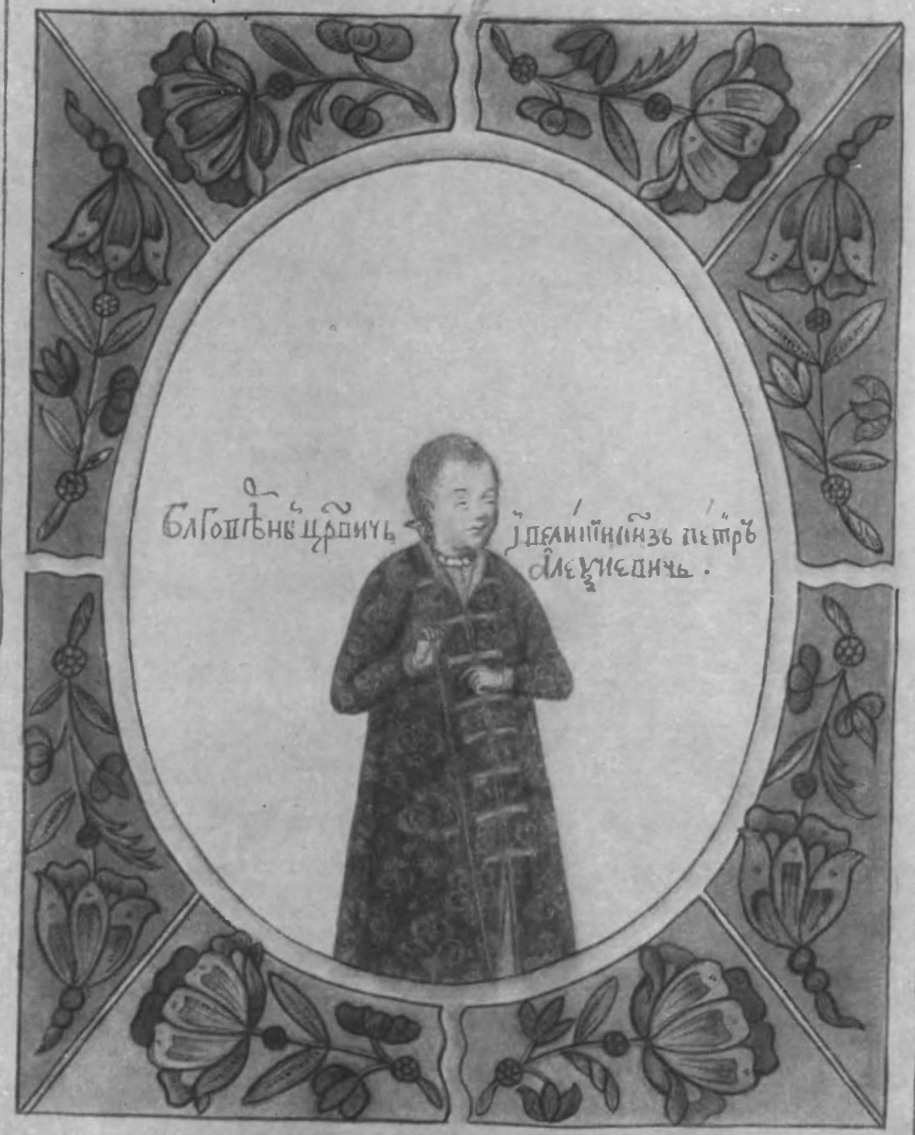 Благовѣ́нъ цр҃вичь
і҆ вели́кїи кн҃зь пе́тръ
а҆леѯиевичь .